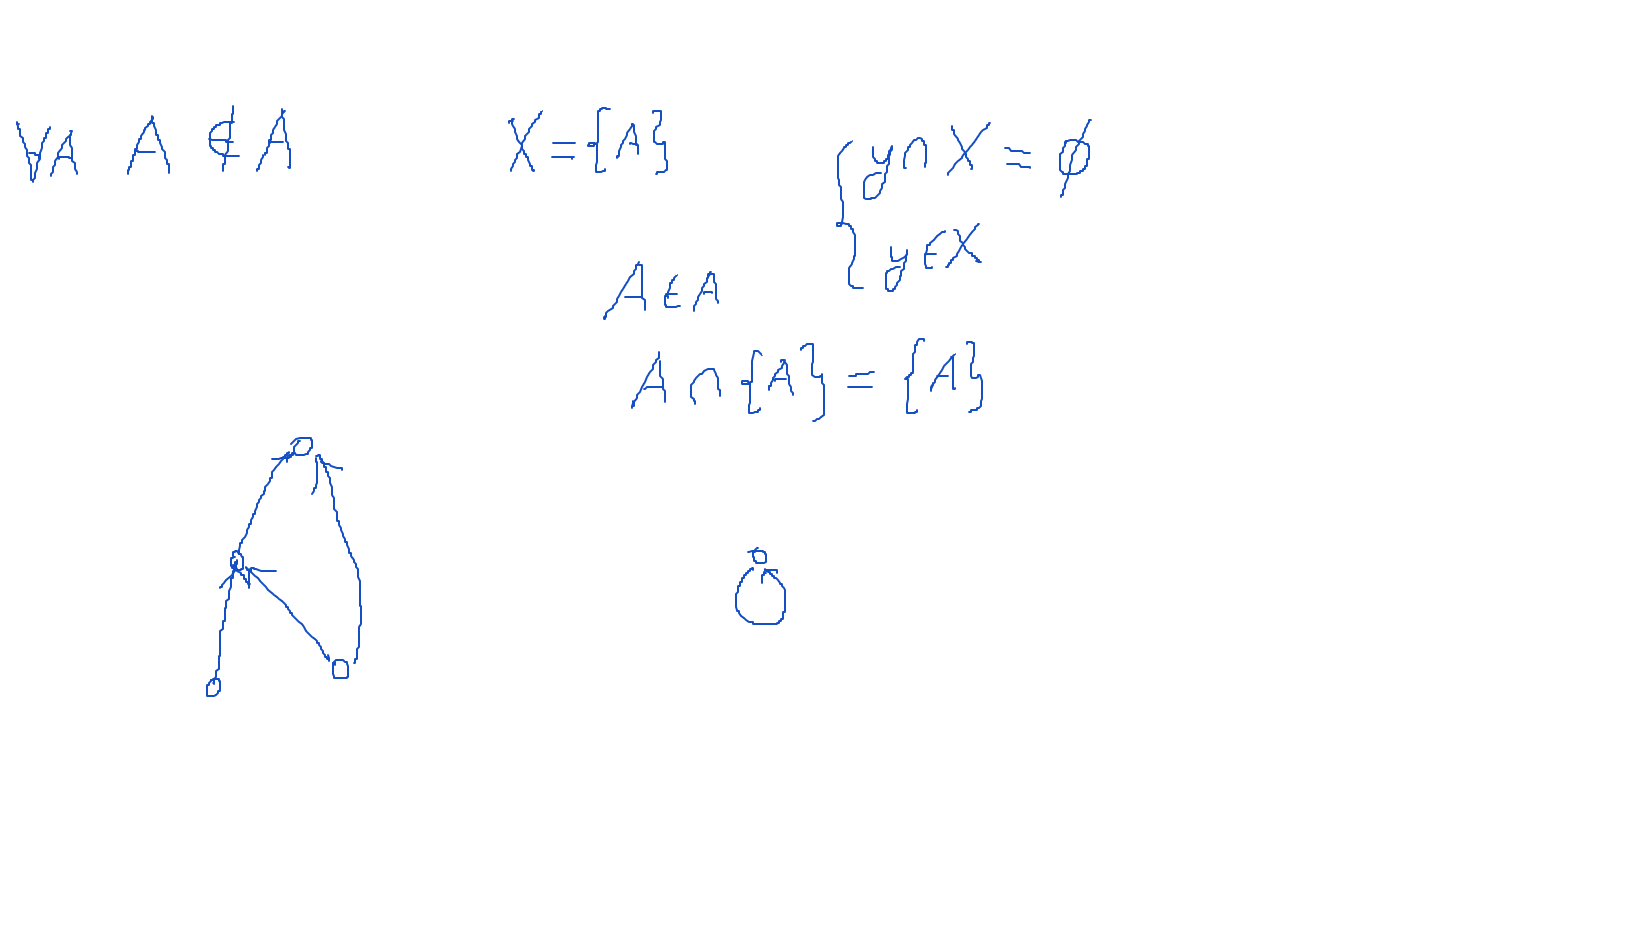 ∀A A ∉ A
X = {A}
y ∩ X = ∅
y ∈ X
A ∈ A
A ∩ {A} = {A}